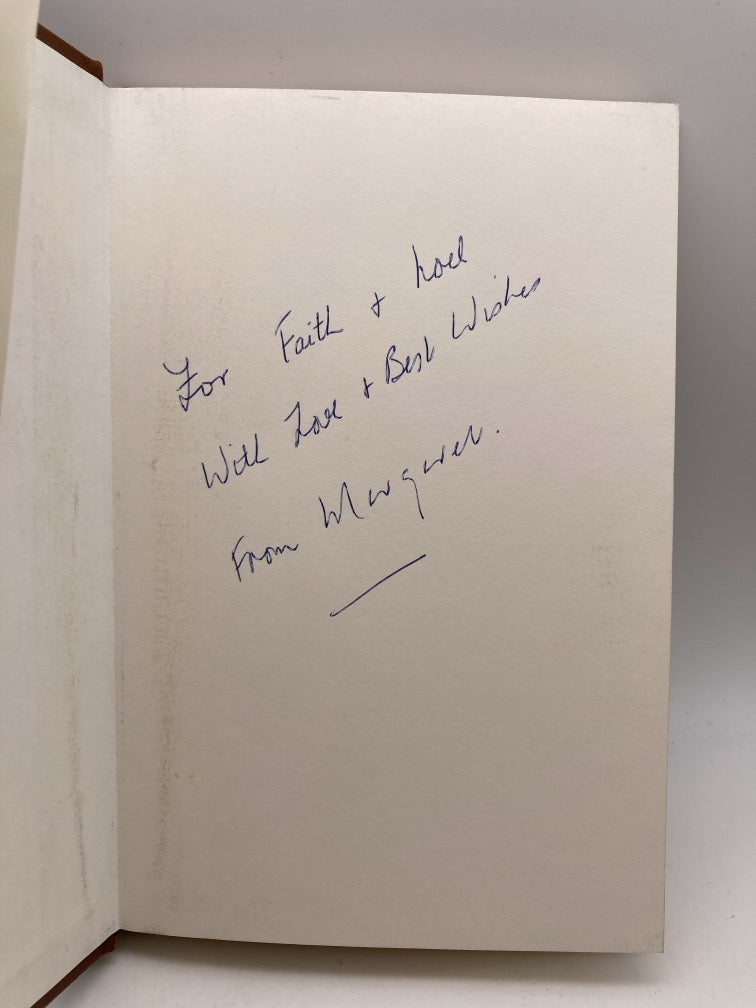 For Faith + Noel
With Love + Best Wishes
From Margaret.